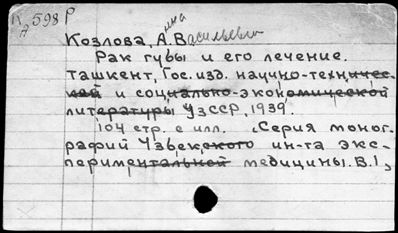 К 598 Р
А
Козлова, Анна Васильевна
Рак губы и его лечение.
Ташкент, Гос. изд. научно-техничес-
кой и социально-экономической
литературы УзССР, 1939.
104 стр. с илл. (Серия моног-
рафий Узбекского ин-та экс-
периментальной медицины. В.1,